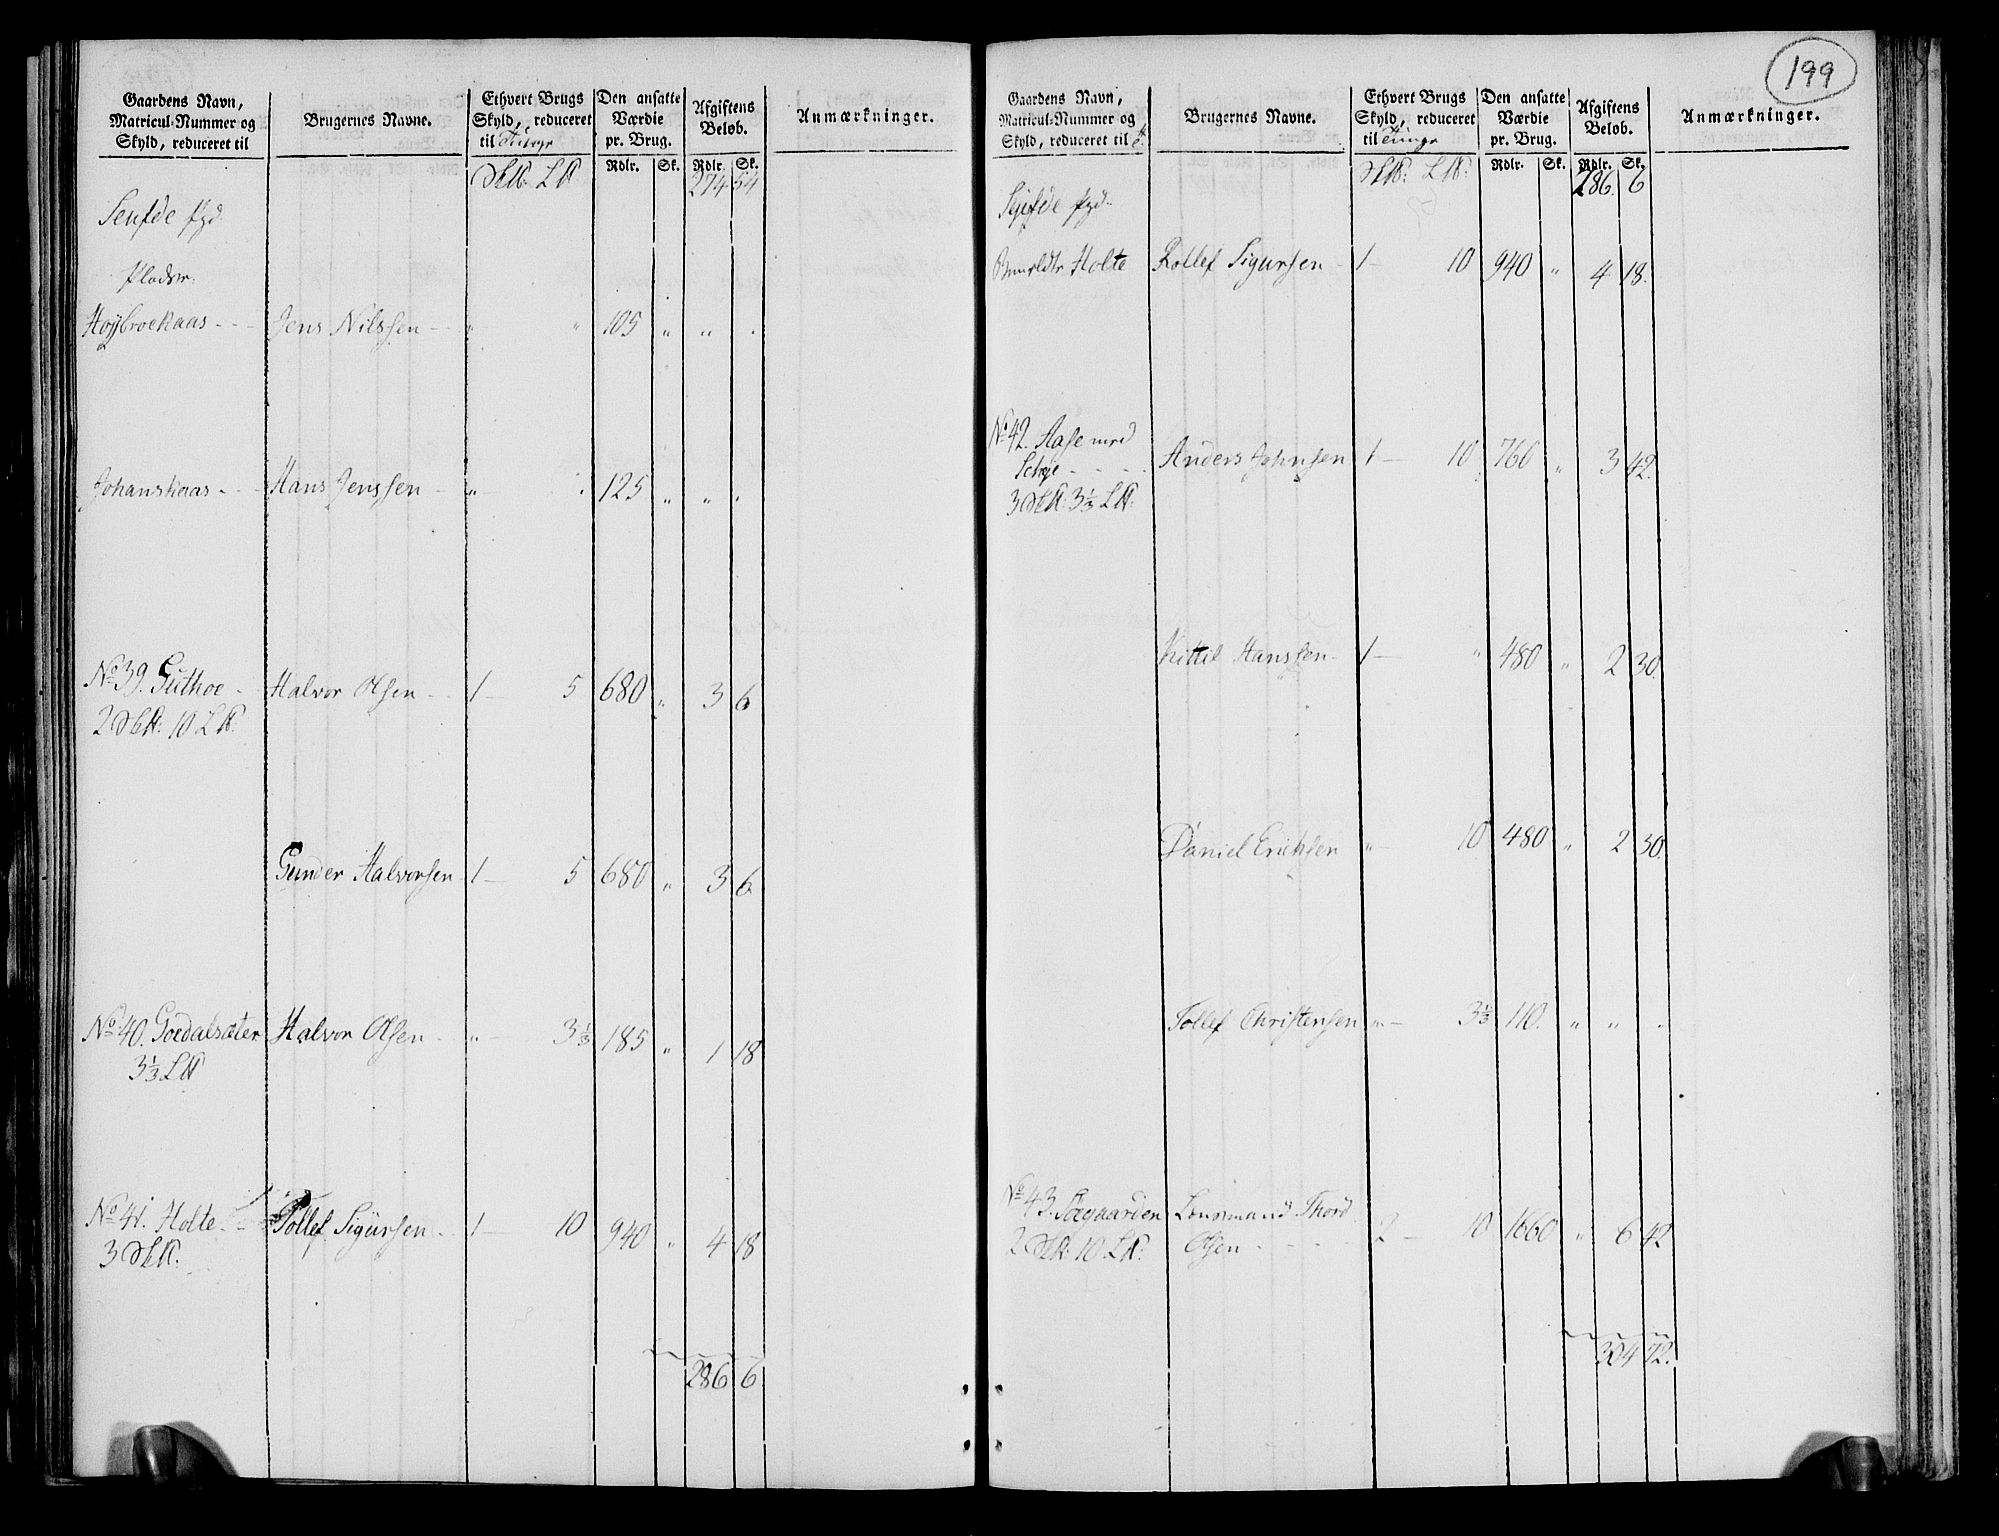 Gaardens Navn, Matricul-Nummer og Skyld, reduceret til
Brugernes Navne.
Ethvert Brugs Skyld, reduceret til Tunge
Den ansatte Værdie pr. Brug.
Afgiftens Beløb.
Anmærkninger.
Rdlr. Sk. Rdlr. Sk.
274 54
Pladser
Jens Nilssen - " " 105 " " .
Johanskaas - - Hans Jenssen - " . 125 " " .
No 39. Guthoe - Halvor Olsen - - 1 - 5 680 " 3 6
2 10
Gunder Halvorsen 1 - 5 680 " 3 6
No 40. Goedalsæter Halvor Olsen - " - 3⅓ 185 " 1 18
3⅓
No 41. Holte Tollef Sigursen - 1 - 10 940 " 4 18
3
286 6
199
Gaardens Navn, Matricul-Nummer og Skyld, reduceret til
Brugernes Navne.
Ethvert Brugs Skyld, reduceret til Tunge
Den ansatte Værdie pr. Brug.
Afgiftens Beløb.
Anmærkninger.
Rdlr. Sk. Rdlr. Sk.
286. 6
Holte Rollef Sigursen - 1 - 10 940 " 4 18.
No 42. Aase med Anders Johnsen 1 - 10 760 " 3 42.
3 3⅓
Kittil Hanssen - 1 - " 480 " 2 30.
Daniel Erichsen " - 10 480 " 2 30.
Tollef Christensen " - 3⅓ 110. " " .
No 43. Søegaarden Lensmand Thord
2 10 Olsen - - - - 2 - 10 1660 " 6 42
304 72.